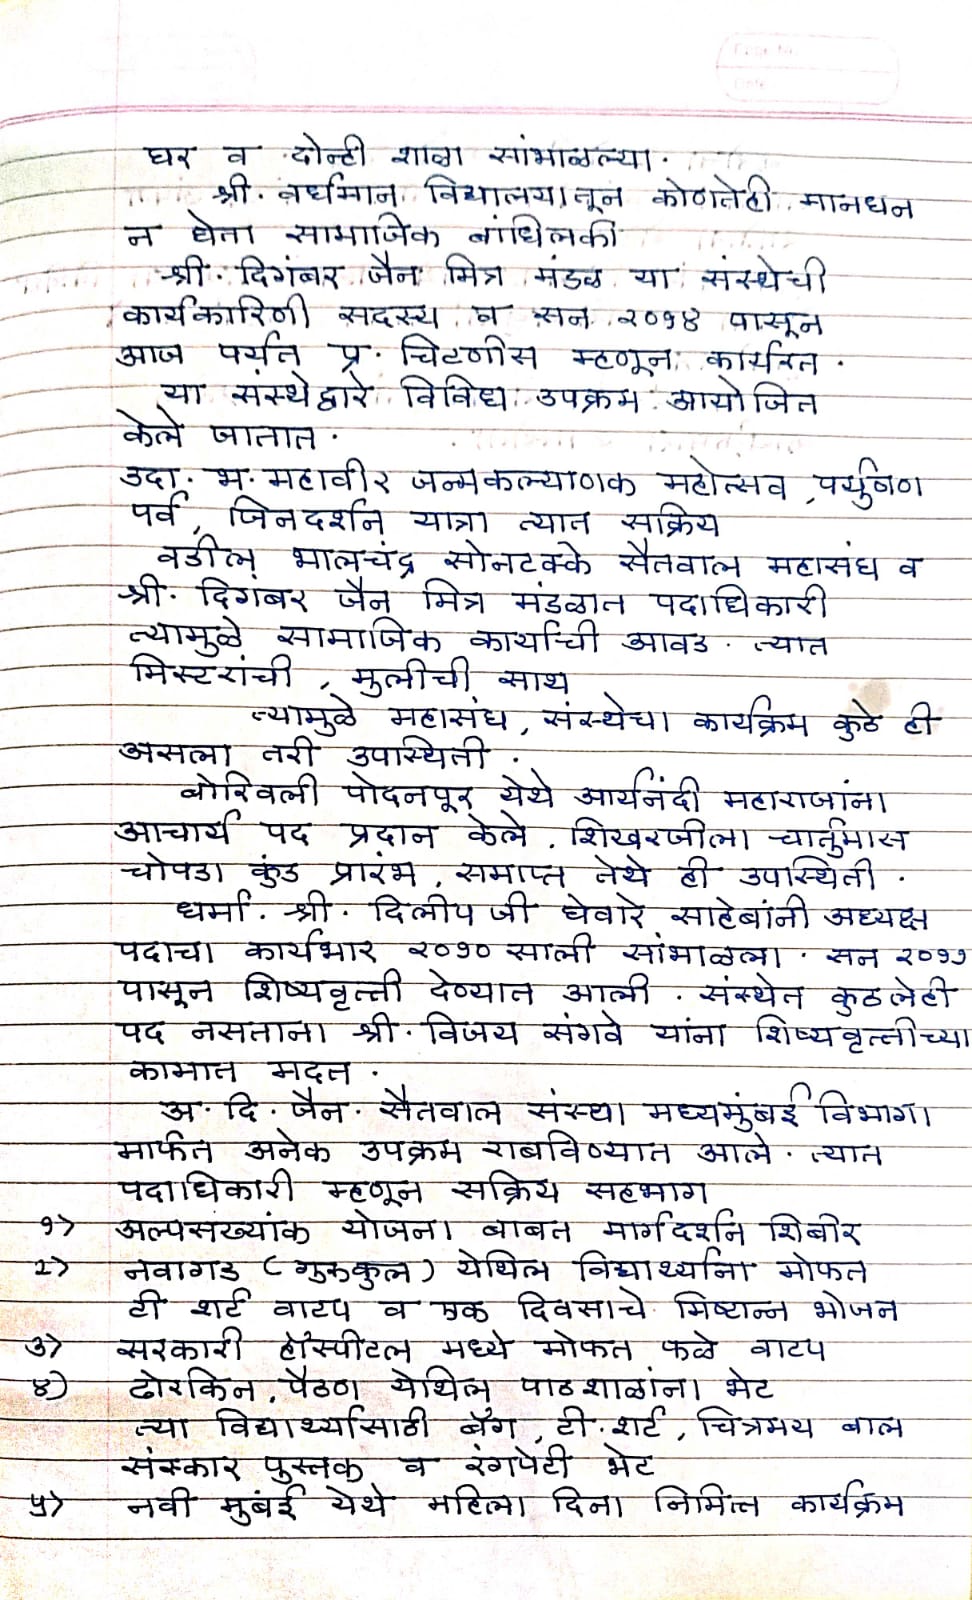 घर व दोन्ही शाळा सांभाळल्या.
श्री. वर्धमान विद्यालयातून कोणतेही मानधन
न घेता सामाजिक बांधिलकी
श्री. दिगंबर जैन मित्र मंडळ या संस्थेची
कार्यकारिणी सदस्य व सन २०१४ पासून
आज पर्यंत प्र. चिटणीस म्हणून कार्यरत.
या संस्थेद्वारे विविध उपक्रम आयोजित
केले जातात.
उदा. भ. महावीर जन्मकल्याणक महोत्सव, पर्युषण
पर्व, जिनदर्शन यात्रा त्यात सक्रिय
वडील भालचंद्र सोनटक्के सैतवाल महासंघ व
श्री. दिगंबर जैन मित्र मंडळात पदाधिकारी
त्यामुळे सामाजिक कार्याची आवड. त्यात
मिस्टरांची, मुलीची साथ
त्यामुळे महासंघ, संस्थेचा कार्यक्रम कुठे ही
असला तरी उपस्थिती.
बोरिवली पोदनपूर येथे आर्यनंदी महाराजांना
आचार्य पद प्रदान केले. शिखरजीला चार्तुमास
चोपडा कुंड प्रारंभ, समाप्त तेथे ही उपस्थिती.
धर्मा. श्री. दिलीप जी घेवारे साहेबांनी अध्यक्ष
पदाचा कार्यभार २०१० साली सांभाळला. सन २०११
पासून शिष्यवृत्ती देण्यात आली. संस्थेत कुठलेही
पद नसताना श्री. विजय संगवे यांना शिष्यवृत्तीच्या
कामात मदत.
अ. दि. जैन. सैतवाल संस्था मध्यमुंबई विभागा
मार्फत अनेक उपक्रम राबविण्यात आले. त्यात
पदाधिकारी म्हणून सक्रिय सहभाग
१) अल्पसंख्यांक योजना बाबत मार्गदर्शन शिबीर
२) नवागड (गुरुकुल) येथिल विद्यार्थ्यांना मोफत
टी शर्ट वाटप व एक दिवसाचे मिष्टान्न भोजन
३) सरकारी हॉस्पीटल मध्ये मोफत फळे वाटप
४) ढोरकिन, पैठण येथिल पाठशाळांना भेट
त्या विद्यार्थ्यांसाठी बॅग, टी. शर्ट, चित्रमय बाल
संस्कार पुस्तक व रंगपेटी भेट
५) नवी मुबंई येथे महिला दिना निमित्त कार्यक्रम